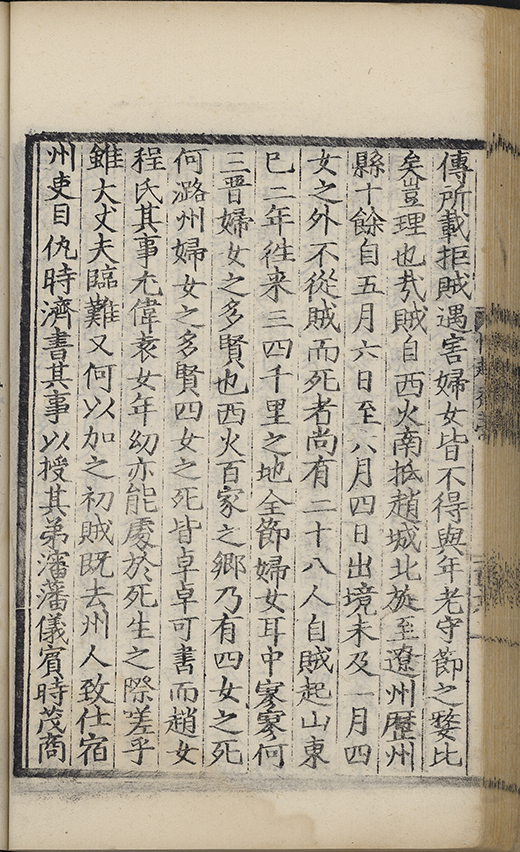 傳所載拒賊遇害婦女皆不得與年老守節之婺比
矣豈理也㢤賊自西火南抵趙城北旋至遼州歷州
縣十餘自五月六日至八月四日出境未及一月四
女之外不從賊而死者尚有二十八人自賊起山東
巳二年徃来三四千里之地全節婦女耳中寥寥何
三晋婦女之多賢也西火百家之鄉乃有四女之死
何潞州婦女之多賢四女之死皆卓卓可書而趙女
程氏其事尤偉袁女年㓜亦能處於死生之際嗟乎
雖大丈夫臨難又何以加之初賊既去州人致仕宿
州吏目仇時濟書其事以授其弟瀋藩儀賔時茂商